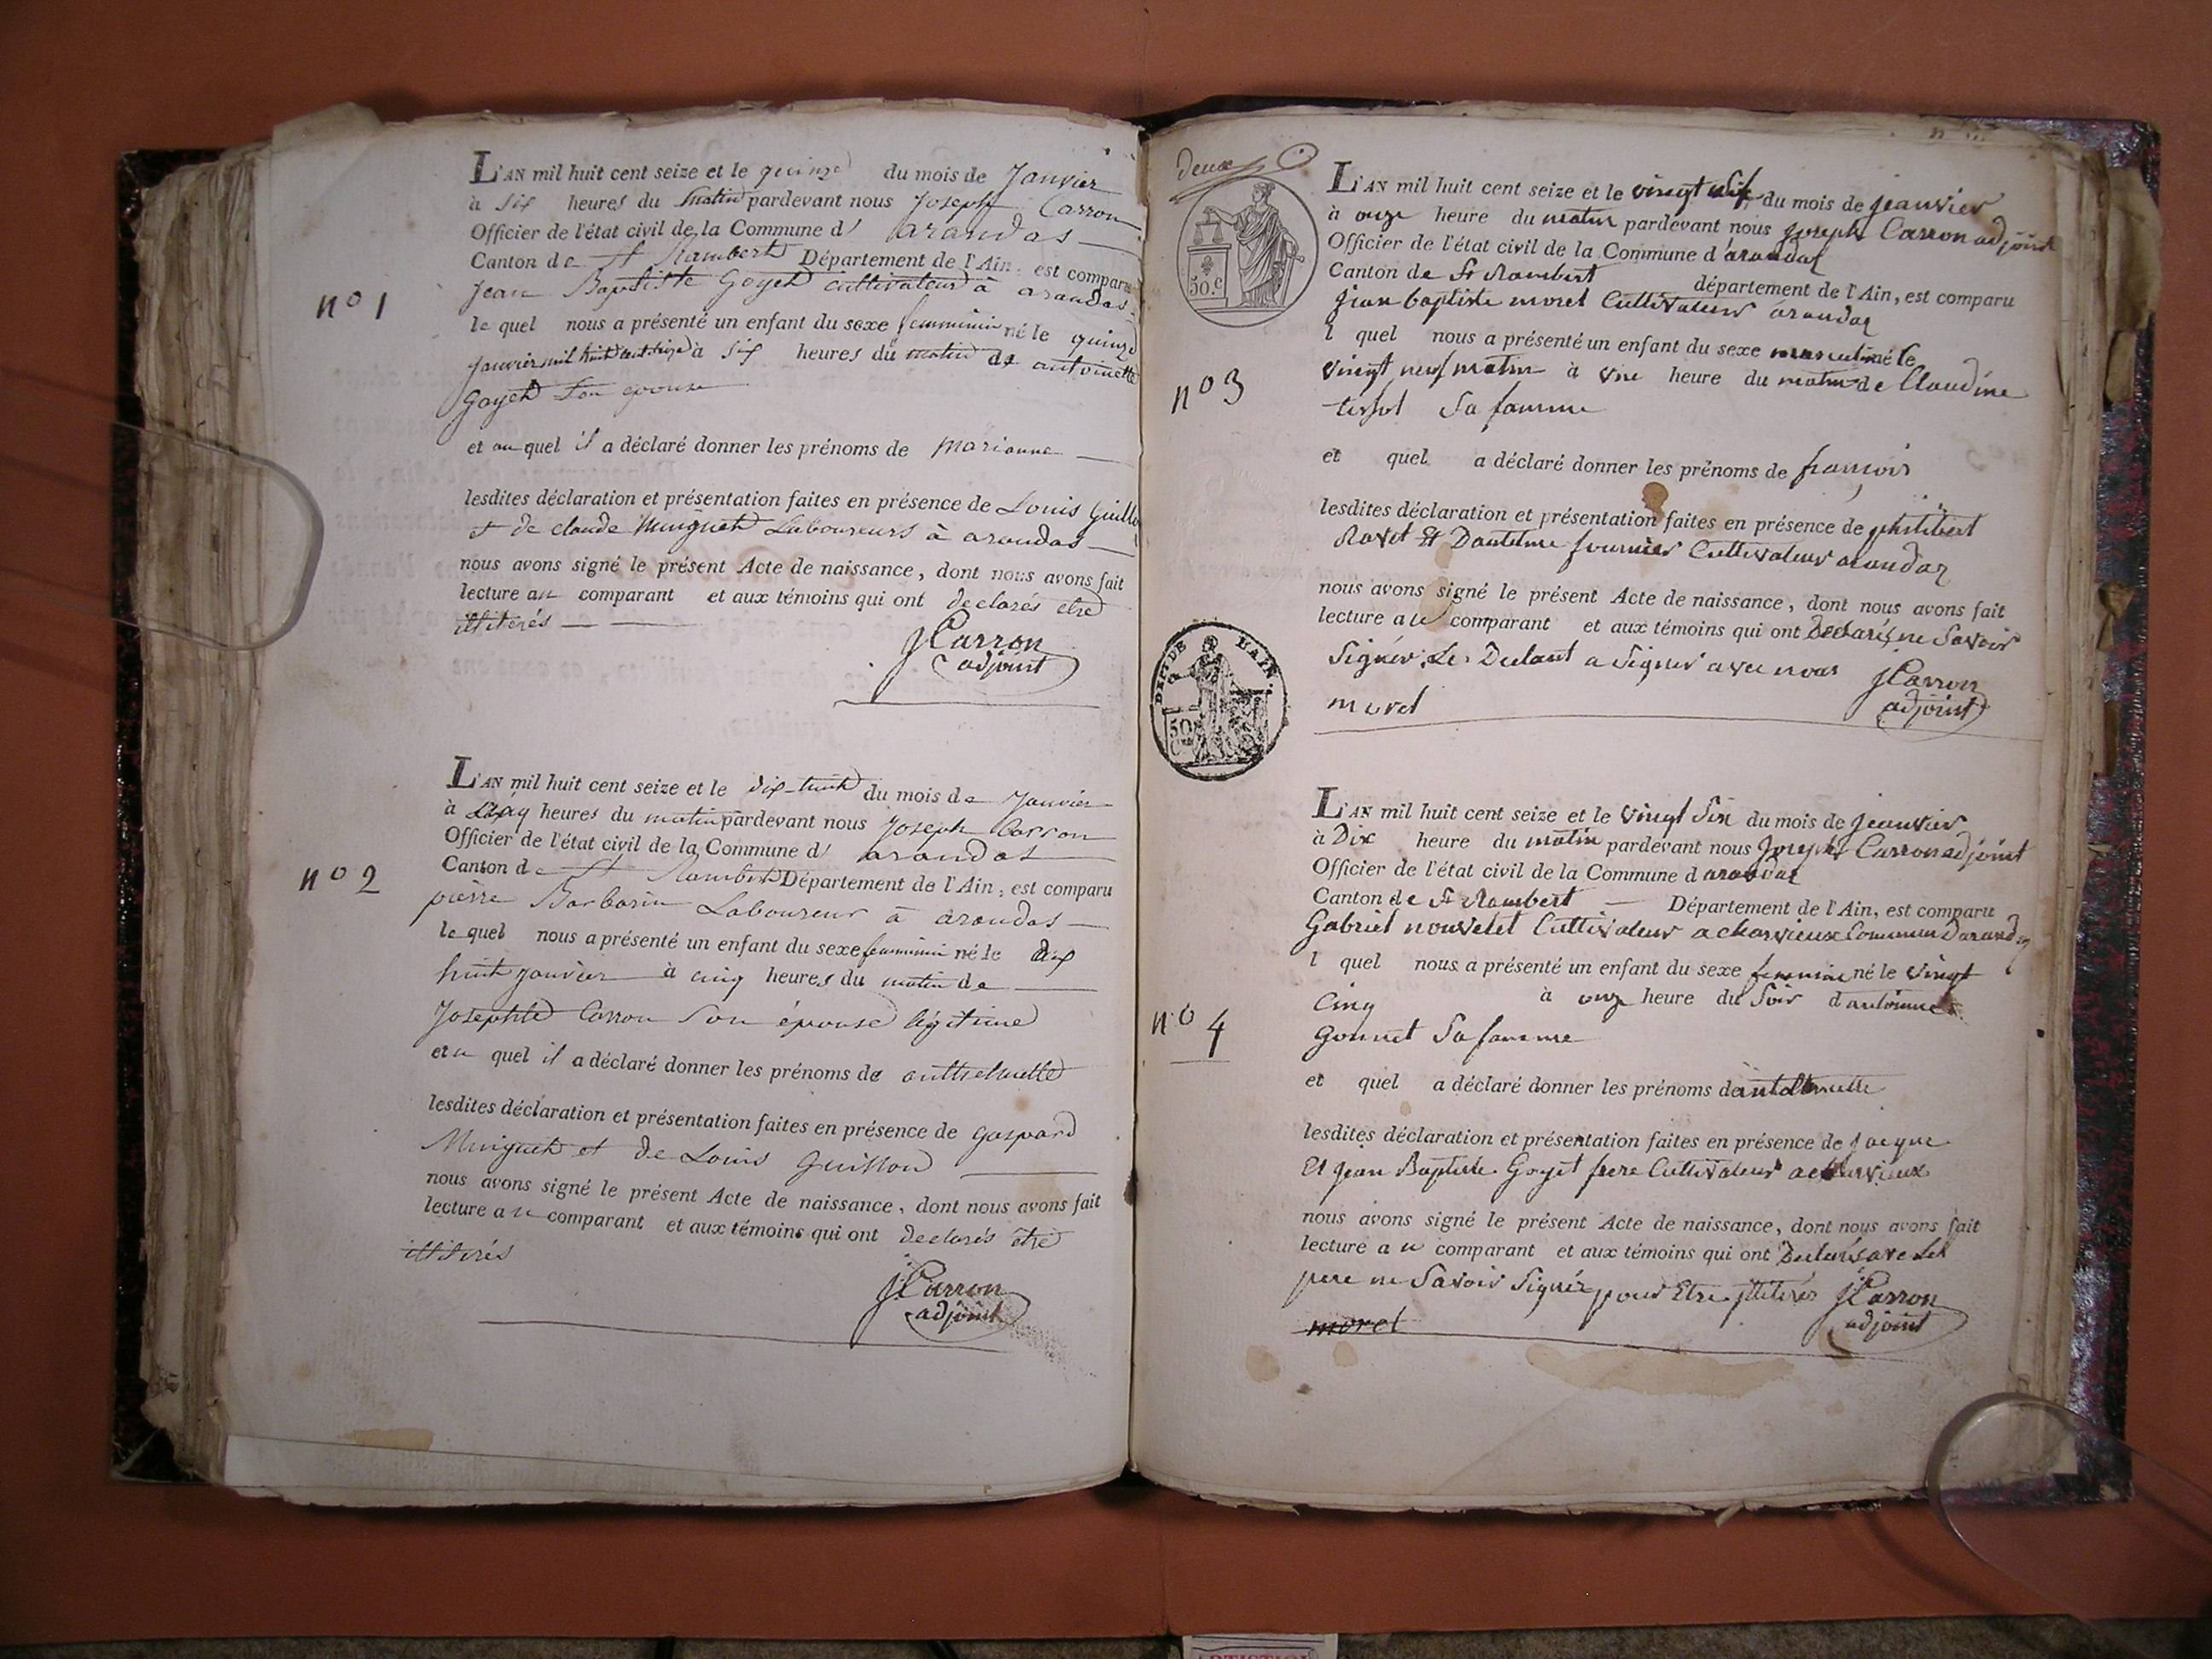 L'AN mil huit cent seize et le quinze du mois de Janvier
à six heures du matin pardevant nous Joseph Carron
Officier de l'état civil de la Commune d' arandas
Canton de St Rambert Département de l'Ain, est comparu
Jean Baptiste Goyet cultivateur à arandas
nº 1
le quel nous a présenté un enfant du sexe femminin né le quinze
Janvier mil huit cent seize à six heures du matin de antoinette
Goyet son epouse
et au quel il a déclaré donner les prénoms de marianne
lesdites déclaration et présentation faites en présence de Louis Guillo
et de claude Muiguet Laboureurs à arandas
nous avons signé le présent Acte de naissance, dont nous avons fait
lecture au comparant et aux témoins qui ont declarés etre
illiterés
JCarron
adjoint
L'AN mil huit cent seize et le dix-huit du mois de Janvier
à cinq heures du matin pardevant nous Joseph Carron
Officier de l'état civil de la Commune d' arandas
Canton de St Rambert Département de l'Ain, est comparu
nº 2
pierre Barbarin Laboureur à arandas
le quel nous a présenté un enfant du sexe femminin né le dix
huit janvier à cinq heures du matin de
Josephte Carron son épouse légitime
et u quel il a déclaré donner les prénoms de
lesdites déclaration et présentation faites en présence de gaspard
Muiguet et de Louis Guillon
nous avons signé le présent Acte de naissance, dont nous avons fait
lecture au comparant et aux témoins qui ont declarés être
illiterés
JCarron
adjoint
deux
50.c
L'AN mil huit cent seize et le vingt du mois de jeanvier
à onze heure du matin pardevant nous joseph Carron adjoint
Officier de l'état civil de la Commune d'arandas
Canton de St Rambert département de l'Ain, est comparu
jean baptiste morel Cultivateur arandas
l quel nous a présenté un enfant du sexe masculin né le
nº 3
vingt neuf matin à une heure du matin de Claudine
tissot Sa famme
et quel a déclaré donner les prénoms de françois
lesdites déclaration et présentation faites en présence de philibert
Ravet Et Dantelme fournier Cultivateur arandas
nous avons signé le présent Acte de naissance, dont nous avons fait
lecture au comparant et aux témoins qui ont Declarés ne Savoir
Signér. Le Declant a Signer avec nous
JCarron
adjoint
morel
DEPT DE L'AIN.
50 Ces
L'AN mil huit cent seize et le vingt Six du mois de jeanvier
à Dix heure du matin pardevant nous Joseph Carron adjoint
Officier de l'état civil de la Commune d arandas
Canton de St Rambert Département de l'Ain, est comparu
Gabriel nouvelet Cultivateur a charvieux Commune Darandas
l quel nous a présenté un enfant du sexe feminin né le vingt
nº 4
Cinq à onze heure du Soir d'antoinne
gonnet Sa famme
et quel a déclaré donner les prénoms de
lesdites déclaration et présentation faites en présence de jacque
Et jean Baptiste Goyet frere Cultivateur a charvieux
nous avons signé le présent Acte de naissance, dont nous avons fait
lecture au comparant et aux témoins qui ont
pere ne Savoir Signér pour Etre jlliterés
JCarron
adjoint
morel